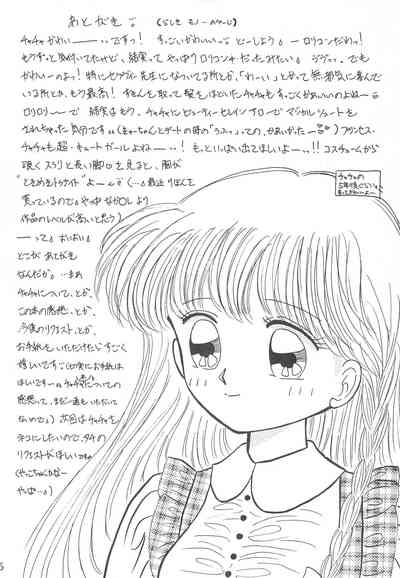 あとがき
チャチャかわいーーーですっ! すっごいかわいいっ どーしよう。ーロリコンだわっ!
もうずっと気付いてたけど、結局ってやっぱりロリコンだったみたい。でも
かわいーのよっ! 特にセラヴィー先生になついてる所とか、「わーい」と言って無邪気に喜んで
いる所とか、もう最高! ずきんを取って髪をほどいたチャチャもすっごくかわいいのよねー
ロリロリーで 結局はもう、チャチャにビューティーセレインアローでマジカルシュートを
されちゃった気分です プリンセス・
チャチャも超・キュートガールよねーっ! もっといっぱい出てほしいよーっ!! コスチュームから
覗くスラリと長い脚を見ると、胸が
"ときめきトゥナイト"よーっ (…最近りぼんを
買っているのでやっぱなかよしより
作品のレベルが高いと思う)
ーって。おいおい
どこがあとがき
なんだか。…まあ
チャチャについて、とか、
この本の感想、とか、
今後のリクエスト、とか、
お手紙をいただけたらすごく
嬉しいです
ほしいですー チャチャ本についての
感想って、まだ一通もいただいて
ないので。) 次回はチャチャを
ネコにしたいので、タチの
リクエストがほしい
(やっこちゃんかなー
やっぱ…。)
チャチャの
5年後ぐらい。
もっとかわいーよー